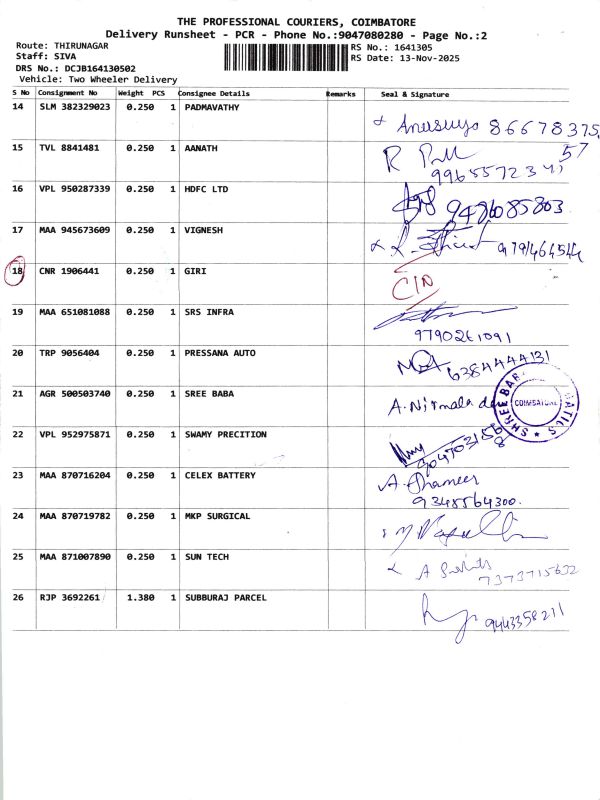 THE PROFESSIONAL COURIERS, COIMBATORE
Delivery Runsheet - PCR - Phone No.:9047080280 - Page No.:2
Route: THIRUNAGAR
Staff: SIVA
DRS No.: DCJB164130502
Vehicle: Two Wheeler Delivery
RS No.: 1641305
RS Date: 13-Nov-2025
S No Consignment No Weight PCS Consignee Details Remarks Seal & Signature
14 SLM 382329023 0.250 1 PADMAVATHY
Anusuya 86678375
57
15 TVL 8841481 0.250 1 AANATH
R
16 VPL 950287339 0.250 1 HDFC LTD
9486085803
17 MAA 945673609 0.250 1 VIGNESH
9791464544
18 CNR 1906441 0.250 1 GIRI
C/N
19 MAA 651081088 0.250 1 SRS INFRA
9790261091
20 TRP 9056404 0.250 1 PRESSANA AUTO
6384444131
21 AGR 500503740 0.250 1 SREE BABA
A. Nirmala
COIMBATORE
SHREE BABA
22 VPL 952975871 0.250 1 SWAMY PRECITION
23 MAA 870716204 0.250 1 CELEX BATTERY
A. Shameer
9348564300.
24 MAA 870719782 0.250 1 MKP SURGICAL
25 MAA 871007890 0.250 1 SUN TECH
A
7373715632
26 RJP 3692261 1.380 1 SUBBURAJ PARCEL
9443358211